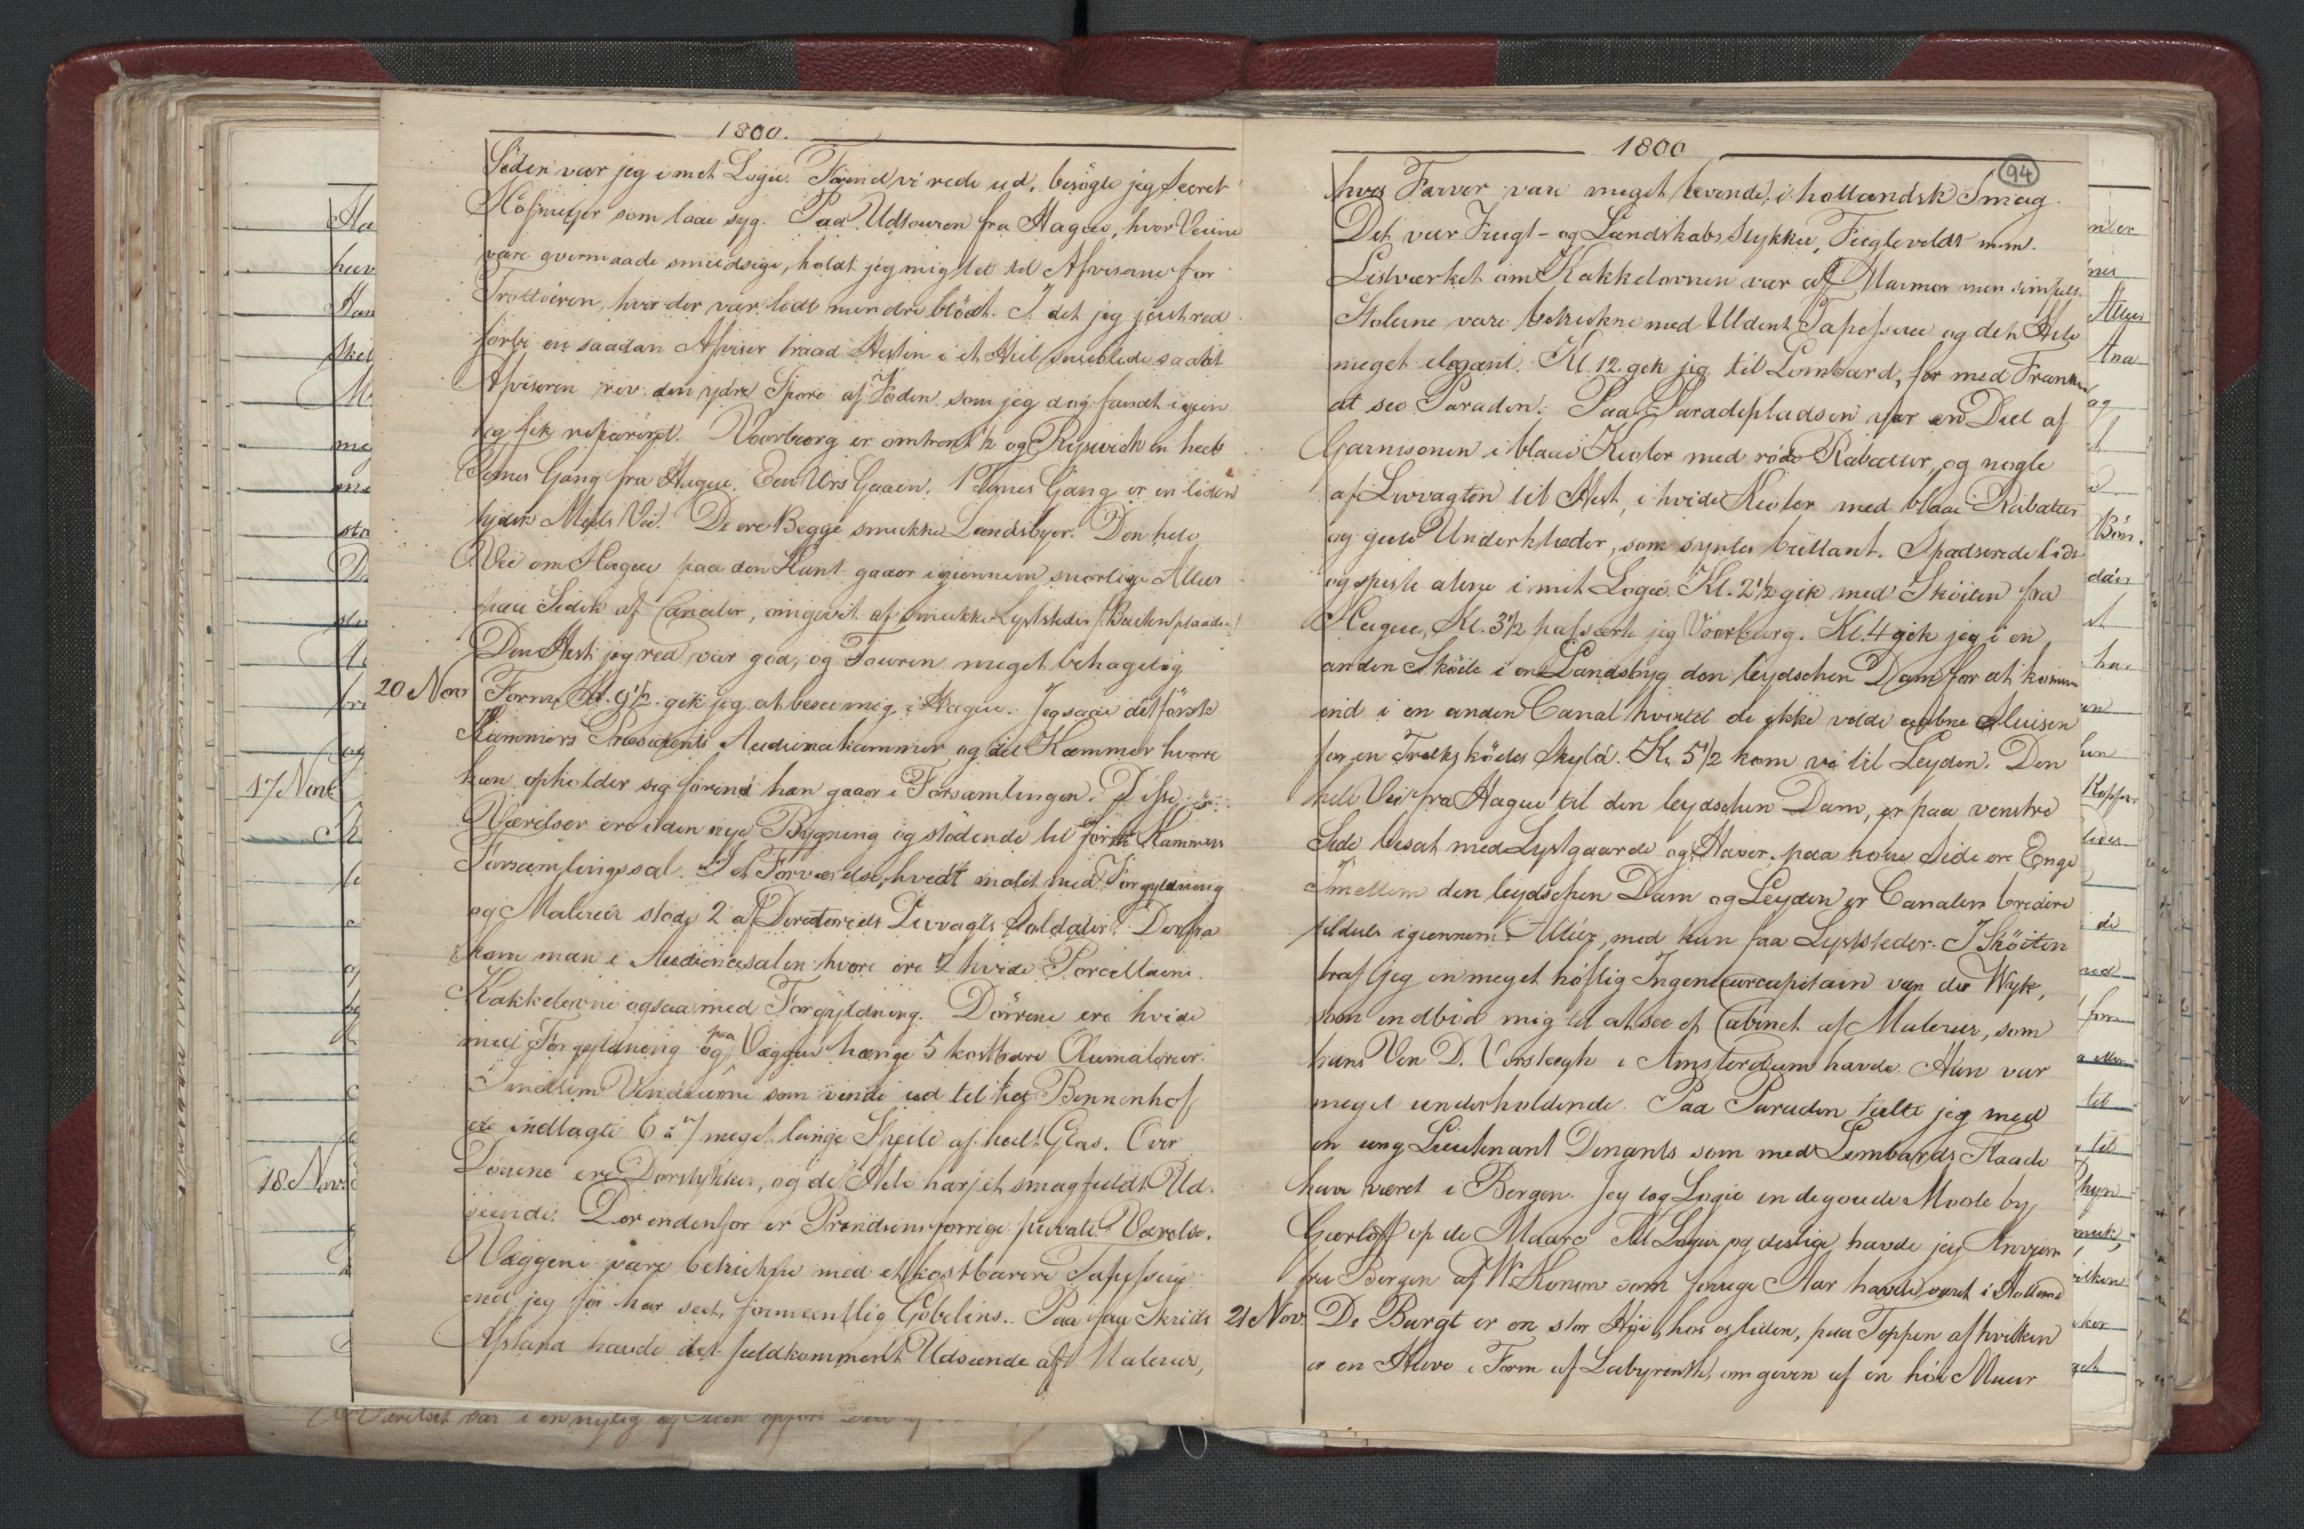 1800.
Siden var jeg i mit Logie. Førend vi rede ud, besögte jeg Secret.
Höfmeijer som laae syg. Paa Udtouren fra Hague, hvor Veiene
vare overmaade smudsige, holdt jeg mig tet til Afviserne for
Trottoiren, hvor der var lidt mindre blödt. I det jeg just red
forbi en saadan Afviser traad Hesten i et Hul, snublede saa at
Afviseren rev den ydre Spore af Foden som jeg dog fandt igien
og fik repareret. Voorburg er omtrent ½ og Rijswick en heel
Times Gang fra Hague. Een Urs Gaaen. 1 Times Gang er en liden
Miils Vei. De ere Begge smukke Landsbyer. Den hele
Vei om Hague paa den Kant gaaer igiennem snorlige Alleer
paa Siden af Canaler, omgivet af smukke Lyststeder (Buitenplaadse)
Den Hest jeg red var god, og Touren meget behagelig
20 Nov Form. Kl. 9½ gik jeg at besee mig i Hague. Jeg saae det förste
Kammers Præsidents Audienskammer og det Kammer hvore
han opholder sig førend han gaaer i Forsamlingen. Disse
Værelser ere i den nye Bygning og stödende til förste Kammers
Forsamlingssal. I et Forværelse, hvidt malet med Forgyldning
og Malerier stode 2 af Directoriets Livvagts Soldater. Derfra
kom man i Audiencesalen hvore ere 2 hvide Porcellains
Kakkelovne ogsaa med Forgyldning. Dörrene ere hvide
med Forgyldning og paa Væggene hænge 5 kostbare Malerier.
Imellem Vinduerne som vende ud til het Binnenhof
ere indlagte 6 à 7 meget lange Speile af heelt Glas. Over
Dörene ere Dorstykker, og det Hele har et smagfuldt Ud-
seende. Der indenfor er Prindsens forrige private Værelse.
Væggene vare betrukne med et kostbarere Tapesserie
end jeg för har seet, formeentlig Gobelins. Paa faa Skridts
Afstand havde det fuldkomment Udseende af Malerier,
1800
94
hvis Farver vare meget levende, i hollandsk Smag.
Det var Frugt- og Landskabs Stykker, Fugleveldt m.m.
Listværket om Kakkelovnen var af Marmor men simpelt.
Stolene vare betrukne med Uldent Tapesserie og det Hele
meget elegant. Kl. 12 gik jeg til Lombard, for med Franken
at see Paraden. Paa Paradepladsen var en Deel af
Garnisonen i blaae Kioler med röde Rabatter, og nogle
af Livvagten til Hest, i hvide Kioler med blaae Rabatter
og gule Underklæder, som syntes brillant. Spadserede lidt
og spiste alene i mit Logie. Kl. 2½ gik med Sköiten fra
Hague, Kl. 3½ passerte jeg Voorburg. Kl. 4 gik jeg i en
anden Sköite i en Landsbye den leydschen Dam for at komme
ind i en anden Canal hvortil de ikke vilde aabne Sluisen
for en Trækskoites Skyld. Kl. 5½ kom vi til Leyden. Den
hele Vei fra Hague til den leydschen Dam, er paa venstre
Side besat med Lystgaarde og Haver, paa höire Side ere Enge
Imellem den leydschen Dam og Leyden er Canalen bredere
tildeels igiennem Alleer, med kun faa Lyststeder. I Sköiten
traf jeg en meget höflig Ingenieurcapitain van der Wyk,
som indböd mig til at see et Cabinet af Malerier, som
hans Ven D. Versteegh i Amsterdam havde. Han var
meget underholdende. Paa Paraden talte jeg med
en ung Lieutenant Dinants som med Lombards Flaade
have været i Bergen. Jeg tog Logie in de goude Moole by
Geerloff op de Maare. Til Logie og deslige havde jeg Anviisn
fra Bergen af W. Konow som forrige Aar havde været i Holland
21 Nov. De Burgt er en stor Höi, paa Toppen af hvilken
er en Have i Form af Labyrinth, omgiven af en höi Muur
17 Nov
18 Nov